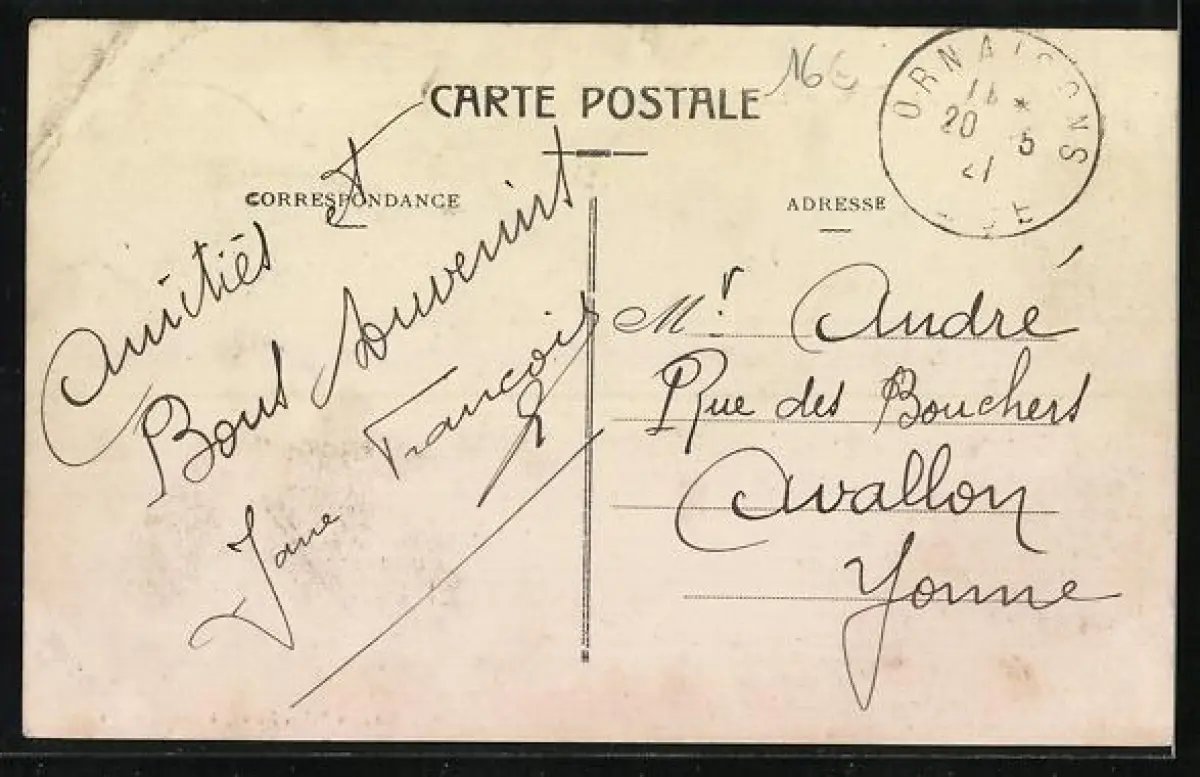 CARTE POSTALE
16€
CORRESPONDANCE
Amitiés et
Bons Souvenirs
François
Jane
ADRESSE
ORNAISONS
20 5
21
Mr André
Rue des Bouchers
Avallon
Yonne